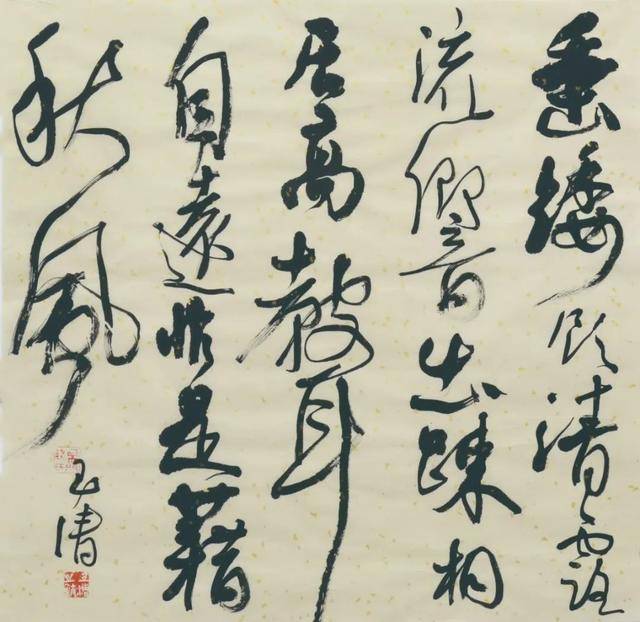 垂緌飲清露
流響出疎桐
居高聲
自遠非是藉
秋風
玉